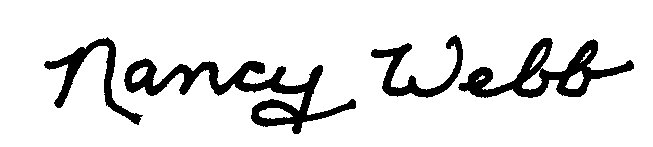 Nancy Webb